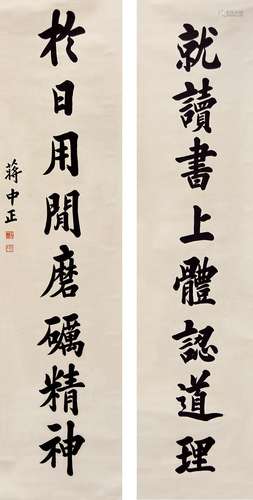 就讀書上體認道理
於日用間磨礪精神
蔣中正